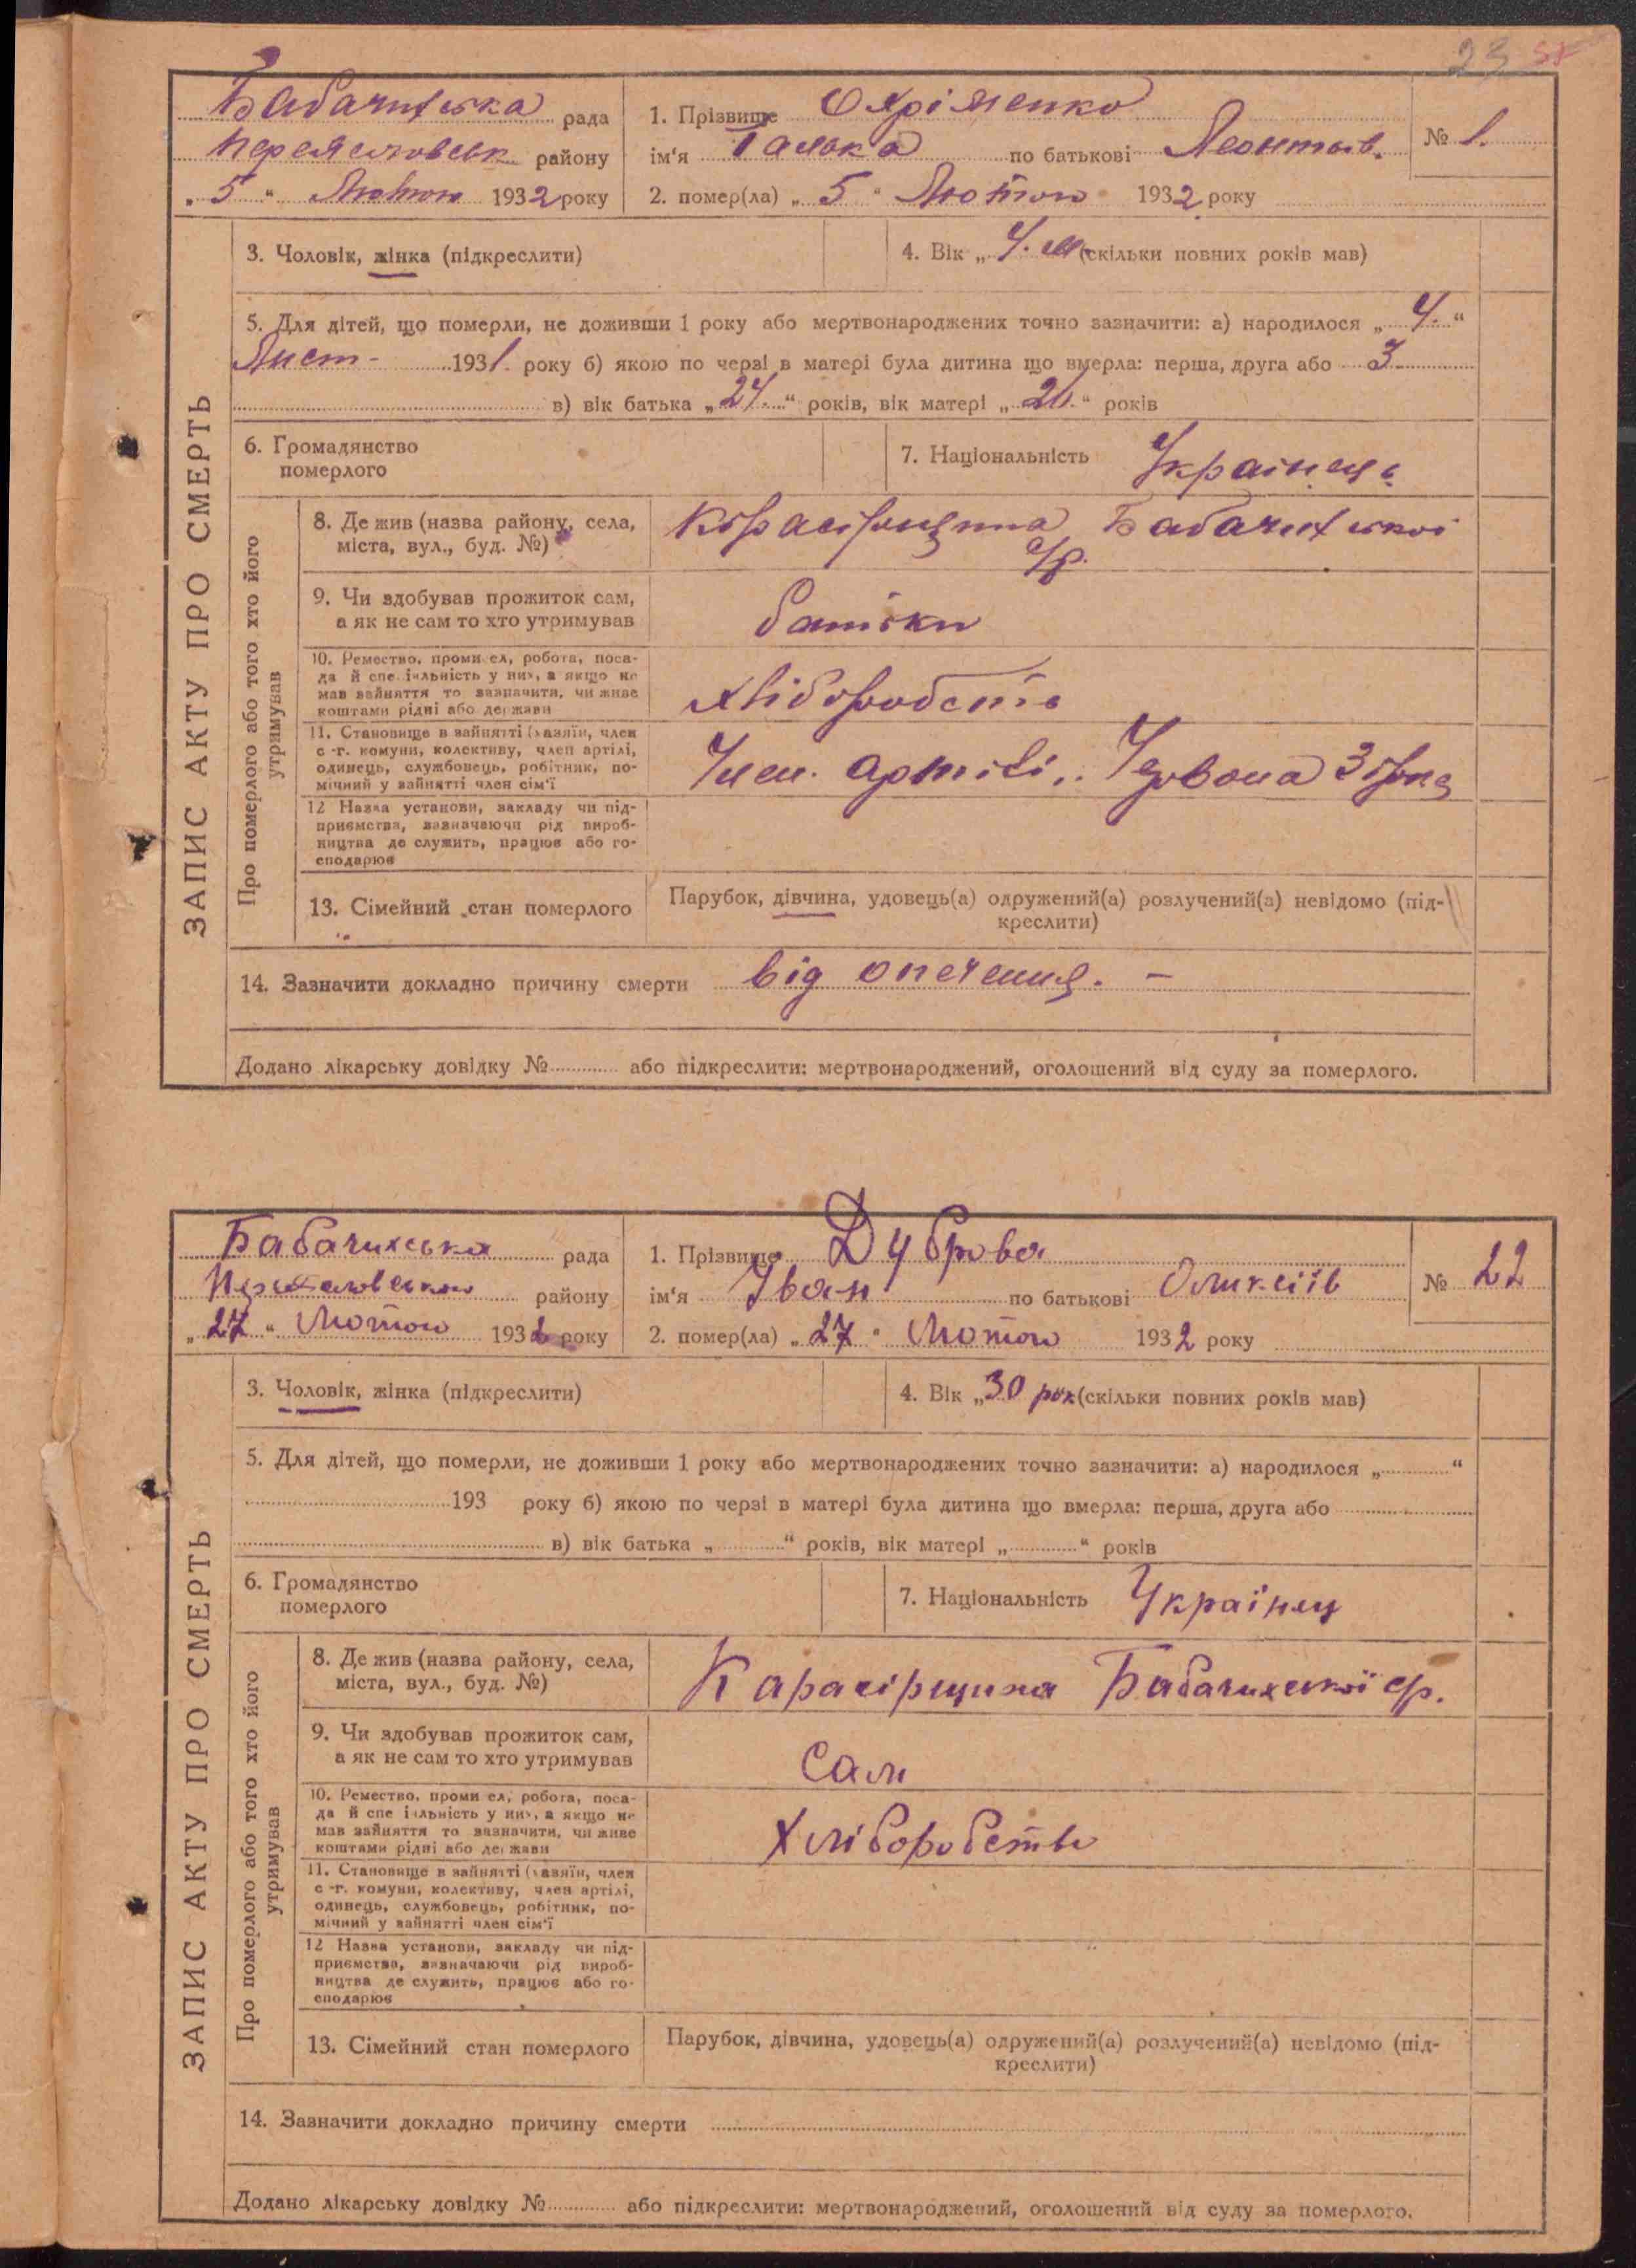 23
Бабачихська рада
Переяславськ району
„ 5 “ Лютого 1932 року
1. Прізвище Охріменко
ім‘я Галька по батькові Леонтьів.
№ 1.
2. помер(ла) „ 5 “ Лютого 1932 року
3. Чоловік, жінка (підкреслити)
4. Вік „ 4. м (скільки повних років мав)
5. Для дітей, що померли, не доживши 1 року або мертвонароджених точно зазначити: а) народилося „ 4. “
Лист- 1931. року б) якою по черзі в матері була дитина що вмерла: перша, друга або 3
в) вік батька „ 27. “ років, вік матері „ 26. “ років
6. Громадянство
померлого
7. Національність Українець
ЗАПИС АКТУ ПРО СМЕРТЬ
Про померлого або того хто його
утримував
8. Де жив (назва району, села,
міста, вул., буд. №)
Бабачихської
с/р.
9. Чи здобував прожиток сам,
а як не сам то хто утримував
батьки
10. Ремество, промисел, робота, поса-
да й спеціяльність у них, а якщо не
мав зайняття то зазначити, чи живе
коштами рідні або держави
хліборобств
11. Становище в зайнятті (хазяїн, член
с.-г. комуни, колективу, член артілі,
одинець, службовець, робітник, по-
мічний у зайнятті член сім‘ї
Член. артілі „Червона Зірка
12 Назва установи, закладу чи під-
приємства, зазначаючи рід вироб-
ництва де служить, працює або го-
сподарює
13. Сімейний стан померлого
Парубок, дівчина, удовець(а) одружений(а) розлучений(а) невідомо (під-
креслити)
14. Зазначити докладно причину смерти від опечения. –
Додано лікарську довідку № або підкреслити: мертвонароджений, оголошений від суду за померлого.
Бабачихська рада
району
„ 27 “ Лютого 1932 року
1. Прізвище Дуброва
ім‘я Іван по батькові Оликсіів
№ 22
2. помер(ла) „ 27 “ Лютого 1932 року
3. Чоловік, жінка (підкреслити)
4. Вік „ 30 рок (скільки повних років мав)
5. Для дітей, що померли, не доживши 1 року або мертвонароджених точно зазначити: а) народилося „ “
193 року б) якою по черзі в матері була дитина що вмерла: перша, друга або
в) вік батька „ “ років, вік матері „ “ років
6. Громадянство
померлого
7. Національність Українец
ЗАПИС АКТУ ПРО СМЕРТЬ
Про померлого або того хто його
утримував
8. Де жив (назва району, села,
міста, вул., буд. №)
Карасірщина Бабачихської ср.
9. Чи здобував прожиток сам,
а як не сам то хто утримував
Сам
10. Ремество, промисел, робота, поса-
да й спеціяльність у них, а якщо не
мав зайняття то зазначити, чи живе
коштами рідні або держави
Хліборобств
11. Становище в зайнятті (хазяїн, член
с.-г. комуни, колективу, член артілі,
одинець, службовець, робітник, по-
мічний у зайнятті член сім‘ї
12 Назва установи, закладу чи під-
приємства, зазначаючи рід вироб-
ництва де служить, працює або го-
сподарює
13. Сімейний стан померлого
Парубок, дівчина, удовець(а) одружений(а) розлучений(а) невідомо (під-
креслити)
14. Зазначити докладно причину смерти
Додано лікарську довідку № або підкреслити: мертвонароджений, оголошений від суду за померлого.